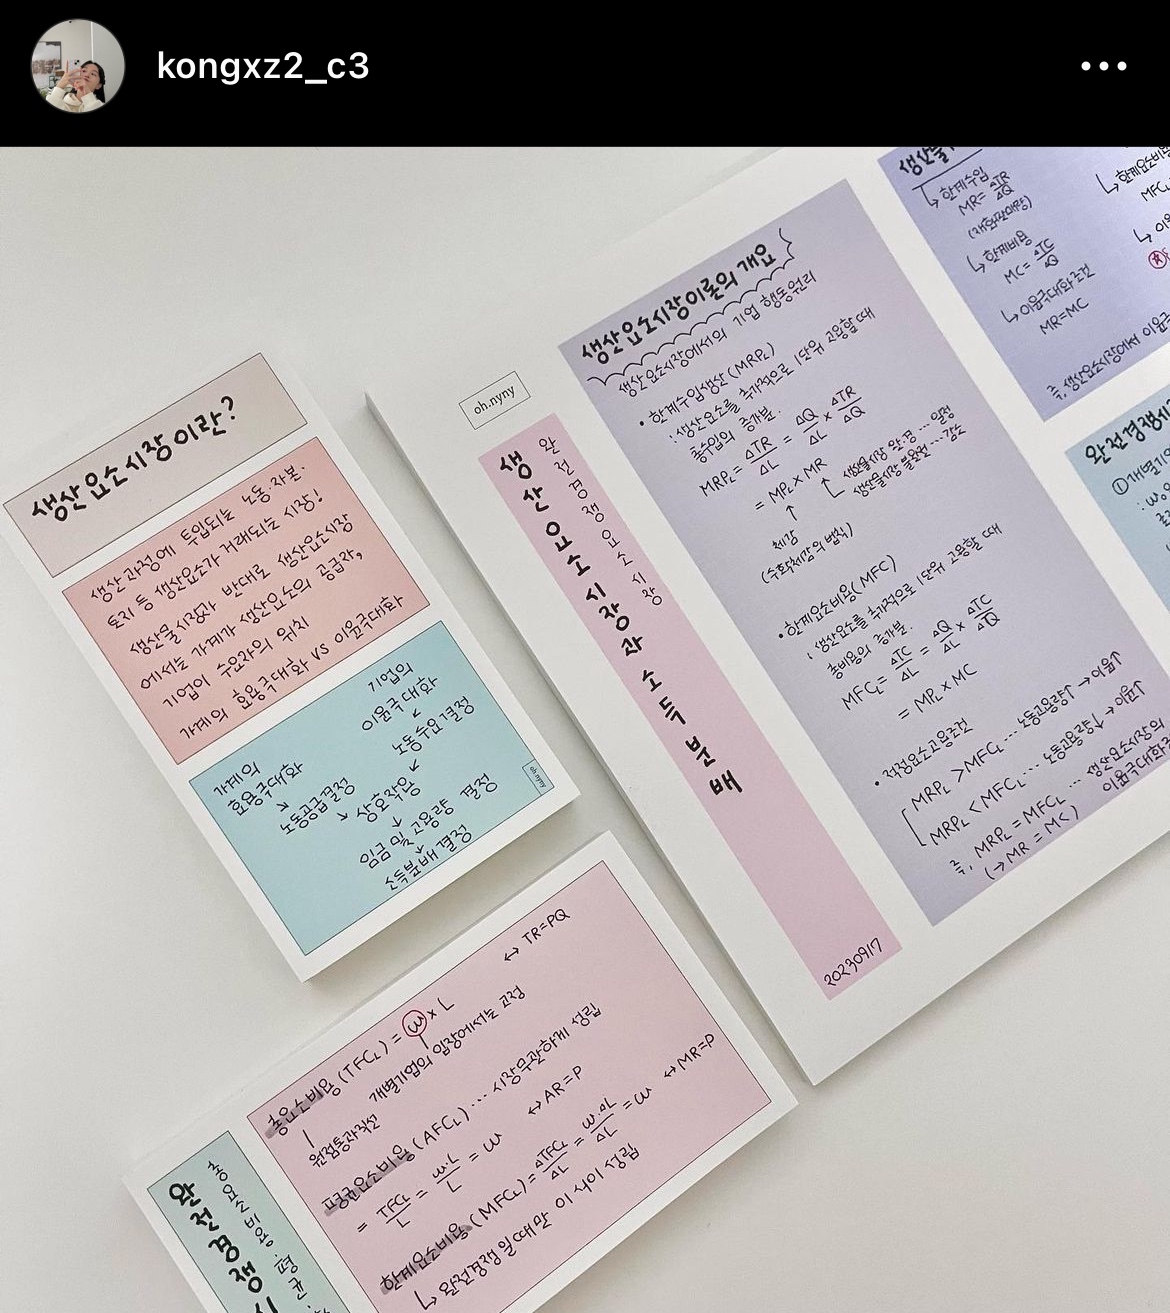 kongxz2_c3
생산요소시장이란?
생산과정에 투입되는 노동·자본·
토지 등 생산요소가 거래되는 시장!
생산물시장과 반대로 생산요소시장
에서는 가계가 생산요소의 공급자,
기업이 수요자의 위치
가계의 효용극대화 vs 이윤극대화
가계의
효용극대화
↘
노동공급결정
↘
기업의
이윤극대화
↙
노동수요결정
↙
상호작용
↓
임금 및 고용량 결정
↓
소득분배 결정
oh.nyny
oh.nyny
완전경쟁요소시장
생산요소시장과 소득분배
20230917
생산요소시장이론의 개요
생산요소시장에서의 기업 행동원리
• 한계수입생산(MRPL)
: 생산요소를 추가적으로 1단위 고용할 때
총수입의 증가분.
MRPL = ΔTR/ΔL = ΔQ/ΔL × ΔTR/ΔQ
= MPL × MR
생산물시장 완·경 … 일정
생산물시장 불완전 … 감소
체감
(수확체감의 법칙)
• 한계요소비용(MFC)
: 생산요소를 추가적으로 1단위 고용할 때
총비용의 증가분.
MFCL = ΔTC/ΔL = ΔQ/ΔL × ΔTC/ΔQ
= MPL × MC
• 적정요소고용조건
MRPL > MFCL … 노동고용량↑ → 이윤↑
MRPL < MFCL … 노동고용량↓ → 이윤↑
즉, MRPL = MFCL … 생산요소시장의
(→ MR = MC) 이윤극대화
↳ 한계수입
MR = ΔTR/ΔQ
↳ 한계비용
MC = ΔTC/ΔQ
↳ 이윤극대화조건
MR = MC
즉, 생산요소시장에서 이윤극
↳ 한계요소비용
MFCL
↳ 이윤
완전경쟁
① 개별기업
총요소비용(TFCL) = w × L ↔ TR=PQ
원점통과직선
개별기업의 입장에서는 고정
평균요소비용(AFCL) … 시장무관하게 성립
= TFCL/L = w·L/L = w ↔ AR=P
한계요소비용(MFCL) = ΔTFCL/ΔL = w·ΔL/ΔL = w ↔ MR=P
↳ 완전경쟁일때만 이 식이 성립
총요소비용·평균
완전경쟁시